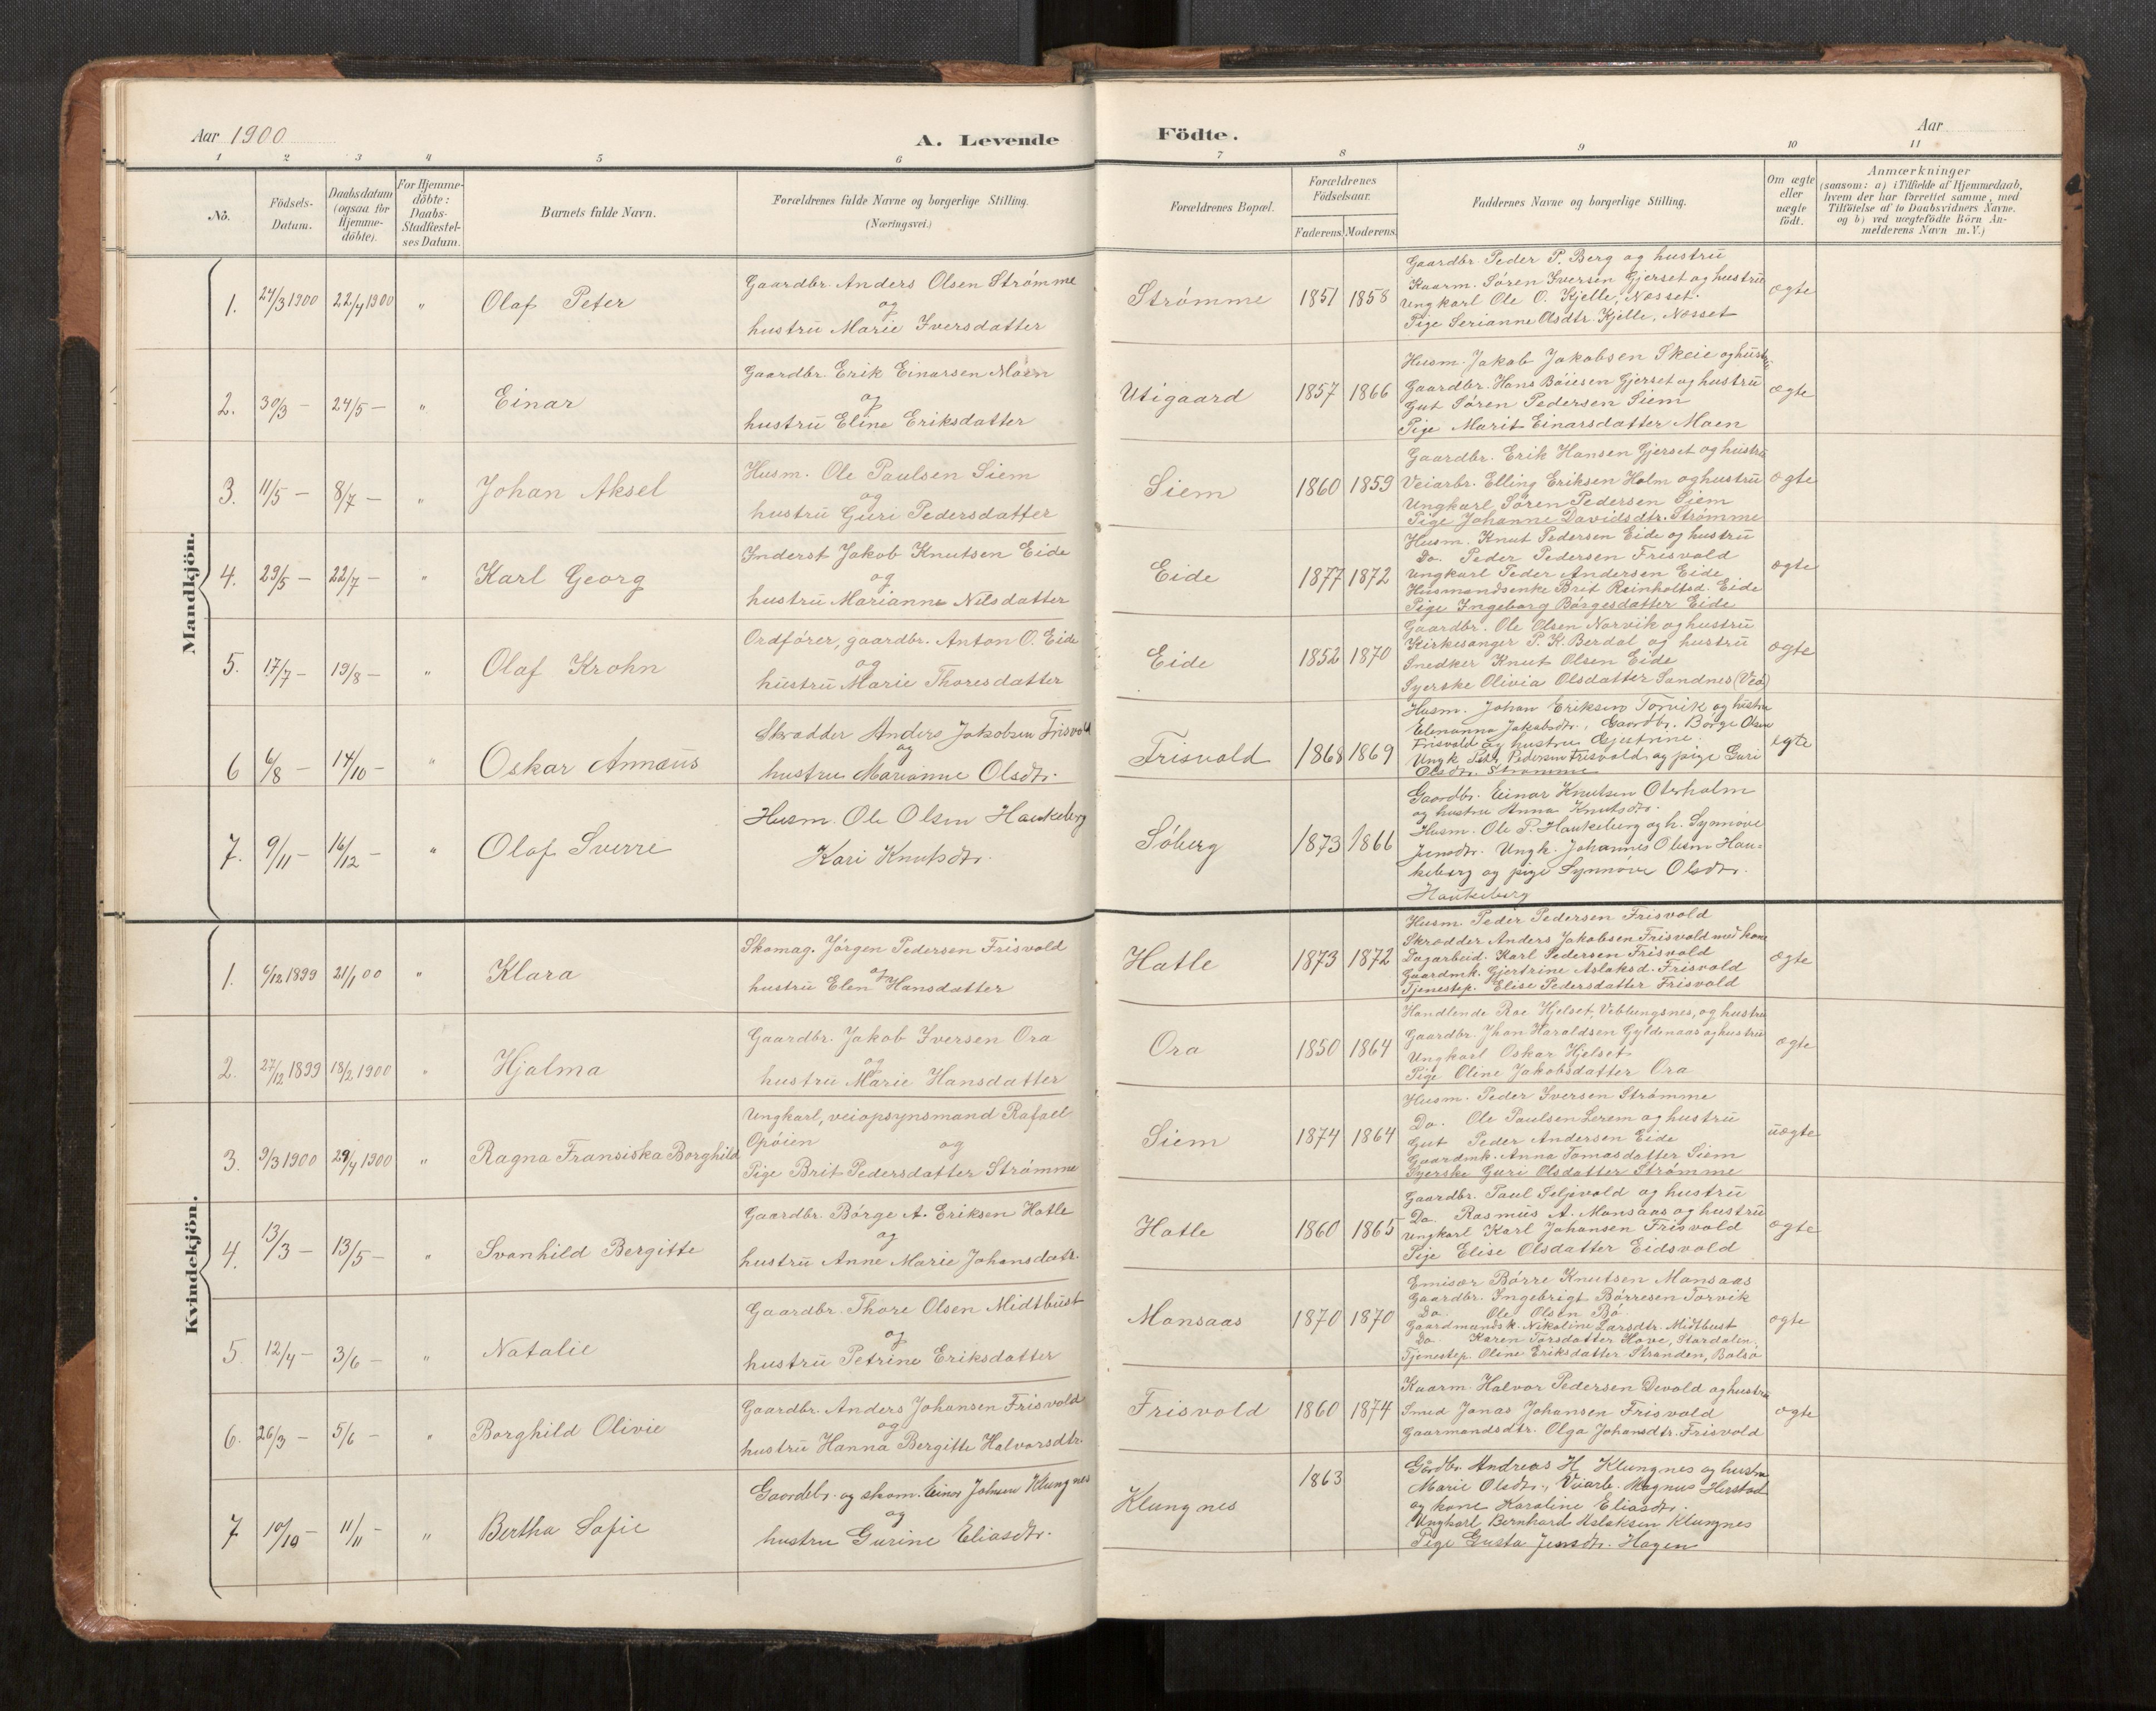 Aar 1900
A. Levende Födte.
Aar
1 2 3 4 5 6 7 8 9 10 11
No.
Födsels-Datum.
Daabsdatum (ogsaa for Hjemme-döbte).
For Hjemme-döbte: Daabs-Stadfæstel-ses Datum.
Barnets fulde Navn.
Forældrenes fulde Navne og borgerlige Stilling. (Næringsvei.)
Forældrenes Bopæl.
Forældrenes Födselsaar.
Faderens. Moderens.
Faddernes Navne og borgerlige Stilling.
Om ægte eller uægte födt.
Anmærkninger
(saasom: a) i Tilfælde af Hjemmedaab,
hvem der har forrettet samme, med
Tilföielse af to Daabsvidners Navne.
og b) ved uægtefödte Börn An-
melderens Navn m. V.)
Mandkjön.
1. 24/3 1900 22/4 1900 " Olaf Peter
Gaardbr. Anders Olsen Strømme
og
hustru Marie Iversdatter
Strømme 1851 1858
Gaardbr. Peder P. Berg og hustru
Kaarm. Søren Iversen Gjerset og hustru
Ungkarl Ole O. Kjelle, Næsset.
Pige Serianne Olsdtr. Kjelle, Næsset
ægte
2. 30/3 – 24/5 – " Einar
Gaardbr. Erik Einarsen Moen
og
hustru Eline Eriksdatter
Utigaard 1857 1866
Husm. Jakob Jakobsen Skeie og hustru
Gaardbr. Hans Bøiesen Gjerset og hustru
Gut Søren Pedersen Siem
Pige Marit Einarsdatter Moen
ægte
3. 11/5 – 8/7 – " Johan Aksel
Husm. Ole Paulsen Siem
og
hustru Guri Pedersdatter
Siem 1860 1859
Gaardbr. Erik Hansen Gjerset og hustru
Veiarbr. Elling Eriksen Holm og hustru
Ungkarl Søren Pedersen Siem
Pige Johanne Davidsdtr. Strømme
ægte
4. 29/5 – 22/7 – " Karl Georg
Inderst Jakob Knutsen Eide
og
hustru Marianne Nilsdatter
Eide 1877 1872
Husm. Knut Pedersen Eide og hustru
Do. Peder Pedersen Frisvold
Ungkarl Peder Andersen Eide
Husmandsenke Brit Reinholtsd. Eide
Pige Ingeborg Børgesdatter Eide
ægte
5. 17/7 – 19/8 – " Olaf Krohn
Ordfører, gaardbr. Anton O. Eide
og
hustru Marie Thoresdatter
Eide 1852 1870
Gaardbr. Ole Olsen Norvik og hustru
Kirkesanger P. K. Berdal og hustru
Snedker Knut Olsen Eide
Syerske Olivia Olsdatter Sandnes (Veø)
ægte
6 6/8 – 14/10 – " Oskar Annæus
Skrædder Anders Jakobsen Frisvold
og
hustru Marianne Olsdtr.
Frisvold 1868 1869
Husm. Johan Eriksen Torvik og hustru
Elenanna Jakobsdtr., Gaardbr. Børge Olsen
Frisvold og hustru Gjertrine.
Ungk. Pedersen Frisvold og pige Guri
Olsdtr. Strømme
egte
7. 9/11 – 16/12 – " Olaf Sverre
Husm. Ole Olsen Haukeberg
Kari Knutsdtr.
Søberg 1873 1866
Gaardbr. Einar Knutsen Oterholm
og hustru Anna Knutsdtr.
Husm. Ole P. Haukeberg og h. Synnøve
Jensdtr. Ungk. Johannes Olsen Hau-
keberg og pige Synnøve Olsdtr.
Haukeberg
Kvindekjön.
1. 6/12 1899 21/1 00 " Klara
Skomag. Jørgen Pedersen Frisvold
og
hustru Elen Hansdatter
Hatle 1873 1872
Husm. Peder Pedersen Frisvold
Skrædder Anders Jakobsen Frisvold med kone
Dagarbeid. Karl Pedersen Frisvold
Gaardmk. Gjertrine Aslaksd. Frisvold
Tjenestep. Elise Pedersdatter Frisvold
ægte
2. 27/12 1899 18/2 1900 " Hjalma
Gaardbr. Jakob Iversen Ora
og
hustru Marie Hansdatter
Ora 1850 1864
Handlende Roe Hjelset, Veblungsnes, og hustru
Gaardbr. Jhon Haraldsen Gyldenaas og hustru
Ungkarl Oskar Hjelset
Pige Oline Jakobsdatter Ora
ægte
3. 9/3 1900 29/4 1900 " Ragna Fransiska Borghild
Ungkarl, veiopsynsmand Rafael
Opøien og
Pige Brit Pedersdatter Strømme
Siem 1874 1864
Husm. Peder Iversen Strømme
Do. Ole Paulsen Lerem og hustru
Gut Peder Andersen Eide
Gaardmk. Anna Tomasdatter Siem
Syerske Guri Olsdatter Strømme
uægte
4. 13/3 – 13/5 – " Svanhild Bergitte
Gaardbr. Børge A. Eriksen Hatle
og
hustru Anne Marie Johansdatr.
Hatle 1860 1865
Gaardbr. Paul Seljvold og hustru
Do. Rasmus A. Monsaas og hustru
Ungkarl Karl Johansen Frisvold
Pige Elise Olsdatter Eidsvold
ægte
5 12/4 – 3/6 – " Natalie
Gaardbr. Thore Olsen Midtbust
og
hustru Petrine Eriksdatter
Monsaas 1870 1870
Emisær Børre Knutsen Monsaas
Gaardbr. Ingebrigt Børresen Torvik
Do. Ole Olsen Bø
Gaardmandsk. Nikoline Larsdtr. Midtbust
Do. Karen Torsdatter Hove, Stordalen
Tjenestep. Oline Eriksdatter Stranden, Bolsø
ægte
6. 26/3 – 5/6 – " Borghild Olivie
Gaardbr. Anders Johansen Frisvold
og
hustru Hanna Bergitte Halvorsdtr.
Frisvold 1860 1874
Kaarm. Halvor Pedersen Devold og hustru
Smed Jonas Johansen Frisvold
Gaarmandsdtr. Olga Johansdtr. Frisvold
ægte
7 10/10 – 11/11 – " Bertha Sofie
Gaardbr. og skom. Einar Johnsen Klungnes
og
hustru Gurine Eliasdtr.
Klungnes 1863
Gårdbr. Andreas H. Klungnes og hustru
Marie Olsdtr., Veiarb. Magnus Herstad
og kone Karoline Eliasdtr.
Ungkarl Bernhard Aslaksen Klungnes
Pige Gusta Jensdtr. Hagen